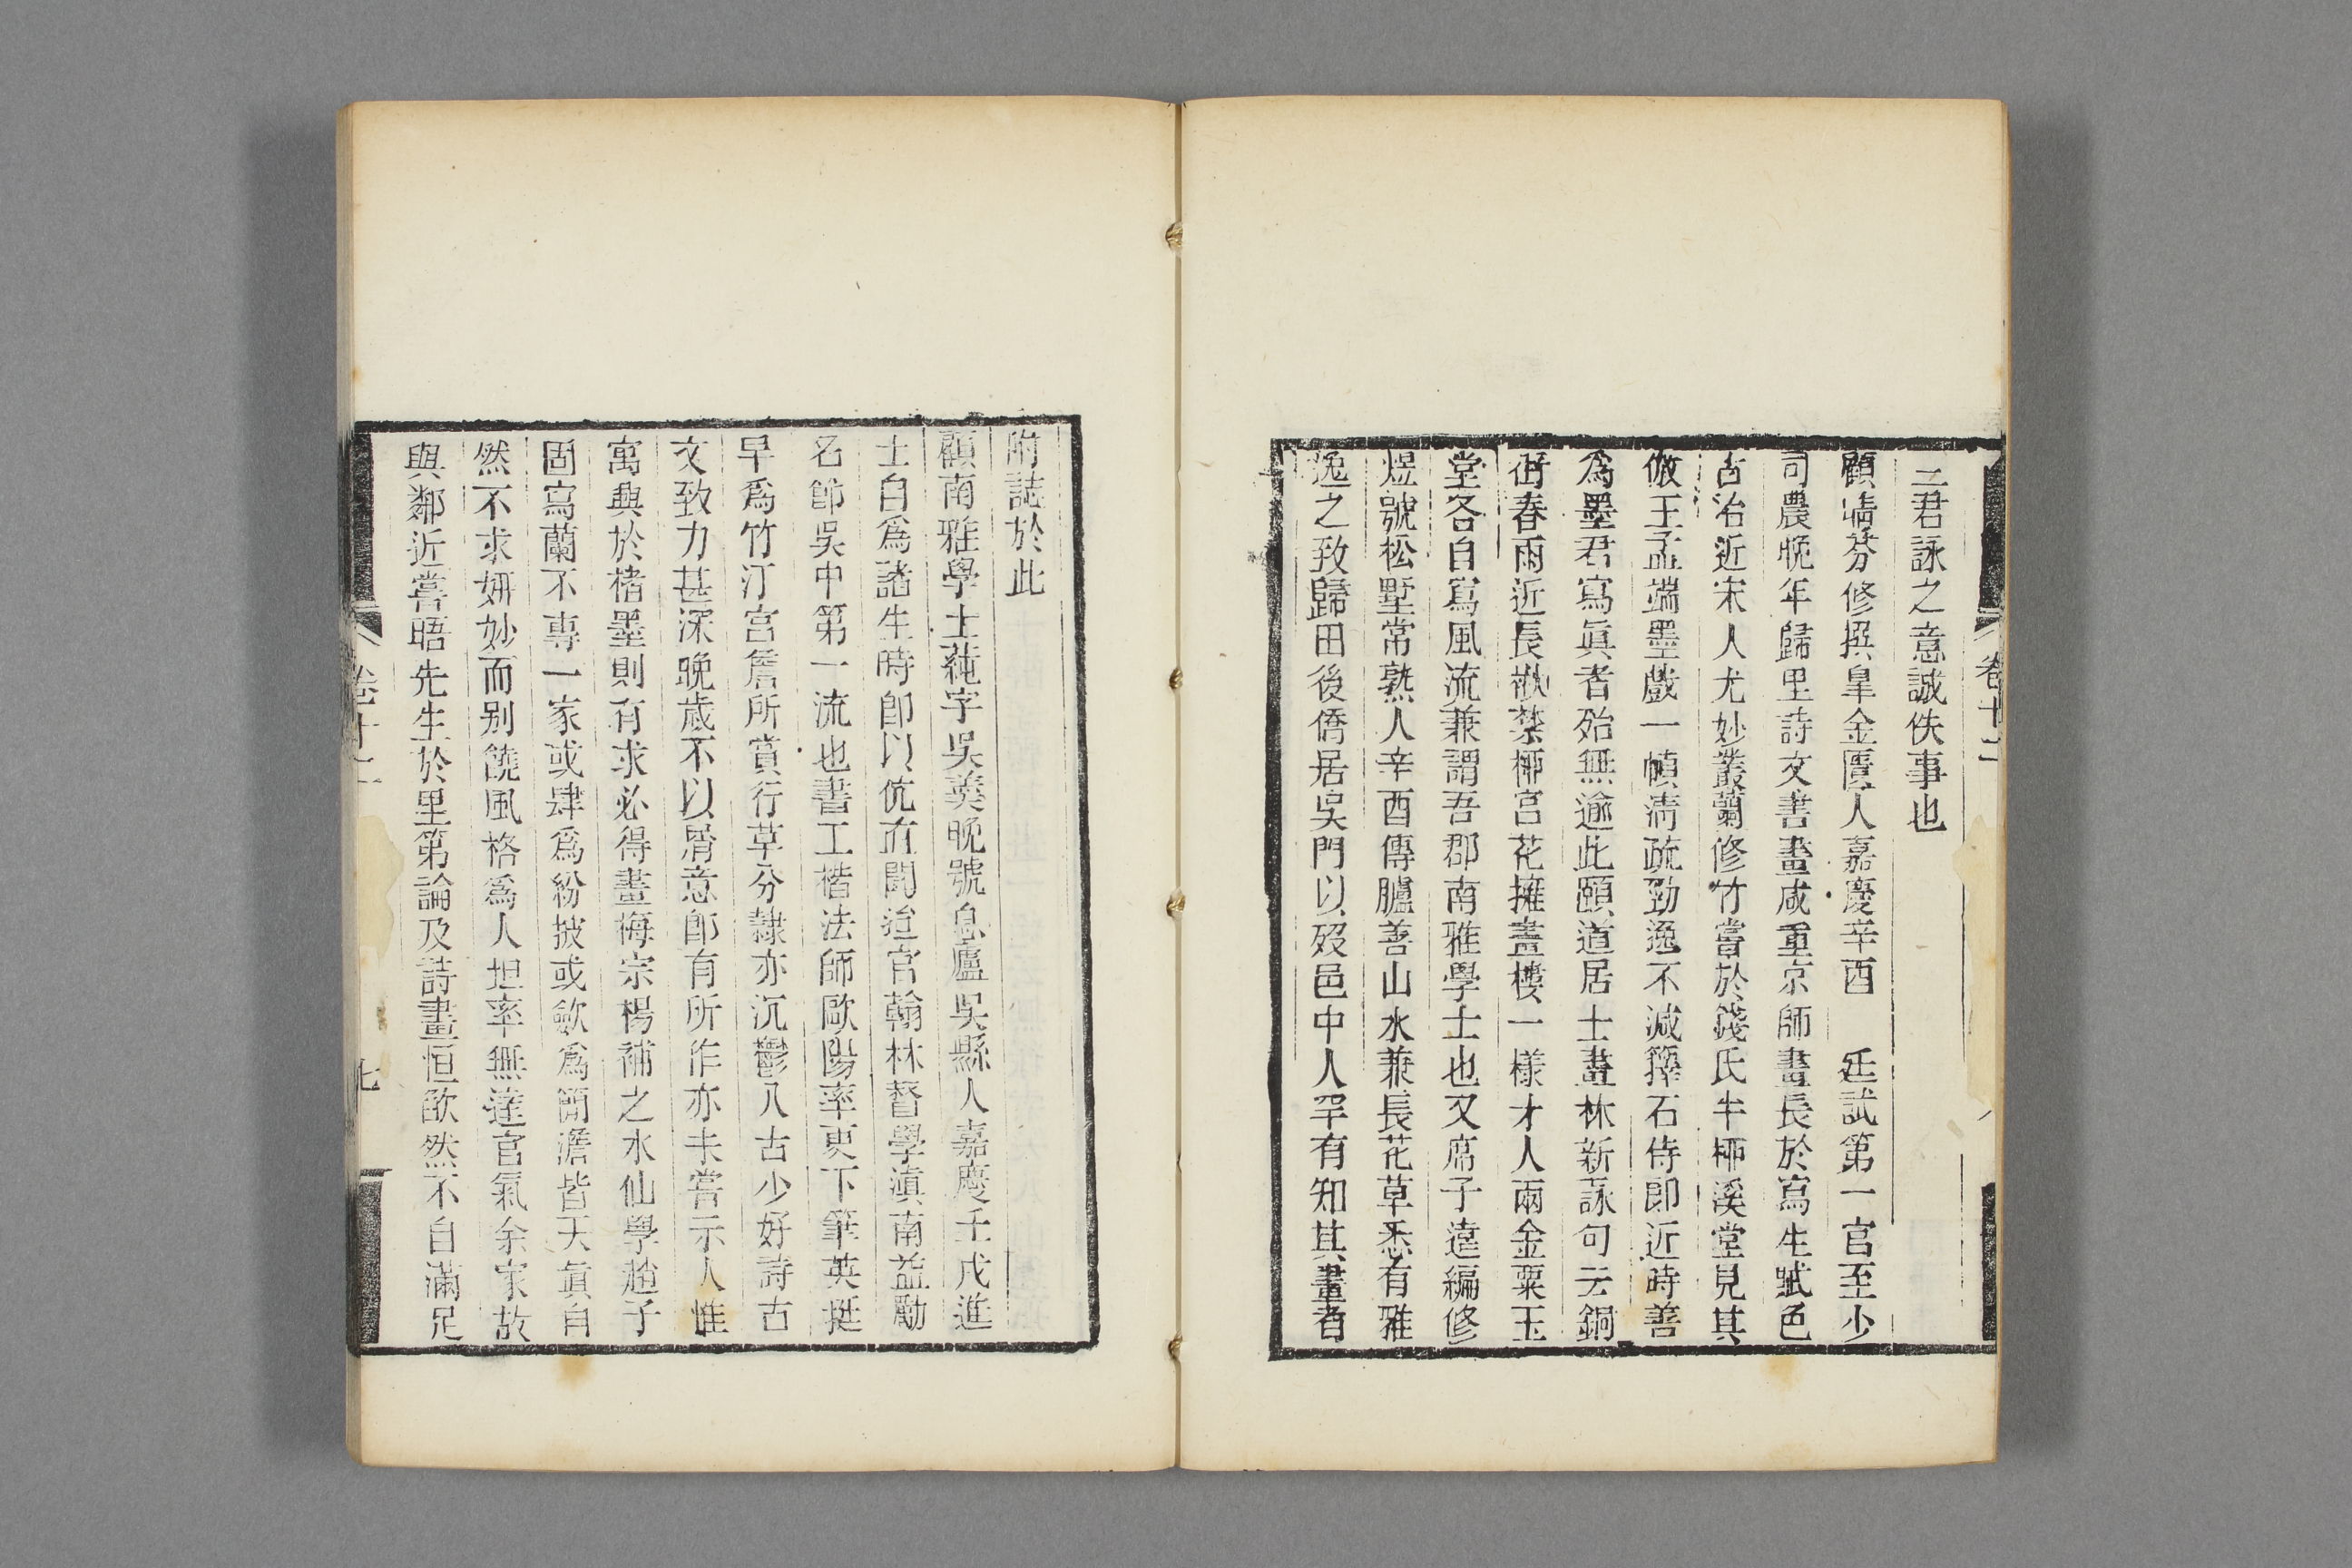 卷十二
三君詠之意誠佚事也
顧晴芬修撰臯金匱人嘉慶辛酉　廷試第一官至少
司農晚年歸里詩文書畫咸重京師畫長於寫生賦色
古冶近宋人尤妙叢蘭修竹嘗於錢氏半柳溪堂見其
倣王孟端墨戲一幀清疏勁逸不減籜石侍郎近時善
為墨君寫眞者殆無逾此頤道居士畫林新詠句云銅
街春雨近長楸禁柳宮花擁畫樓一樣才人兩金粟玉
堂各自寫風流兼謂吾郡南雅學士也又席子遠編修
煜號松墅常熟人辛酉傳臚善山水兼長花草悉有雅
逸之致歸田後僑居吳門以歿邑中人罕有知其畫者
附誌於此
顧南雅學士蒓字吳羹晚號息廬吳縣人嘉慶壬戌進
士自爲諸生時卽以伉直聞迨官翰林督學滇南益勵
名節吳中第一流也書工楷法師歐陽率更下筆英挺
早爲竹汀宮詹所賞行草分隸亦沉鬱入古少好詩古
文致力甚深晚歲不以屑意卽有所作亦未嘗示人惟
寓興於楮墨則有求必得畫梅宗楊補之水仙學趙子
固寫蘭不專一家或肆爲紛披或斂爲簡澹皆天眞自
然不求妍妙而别饒風格爲人坦率無達官氣余家故
與鄰近嘗晤先生於里第論及詩畫恒欿然不自滿足
卷十二
七